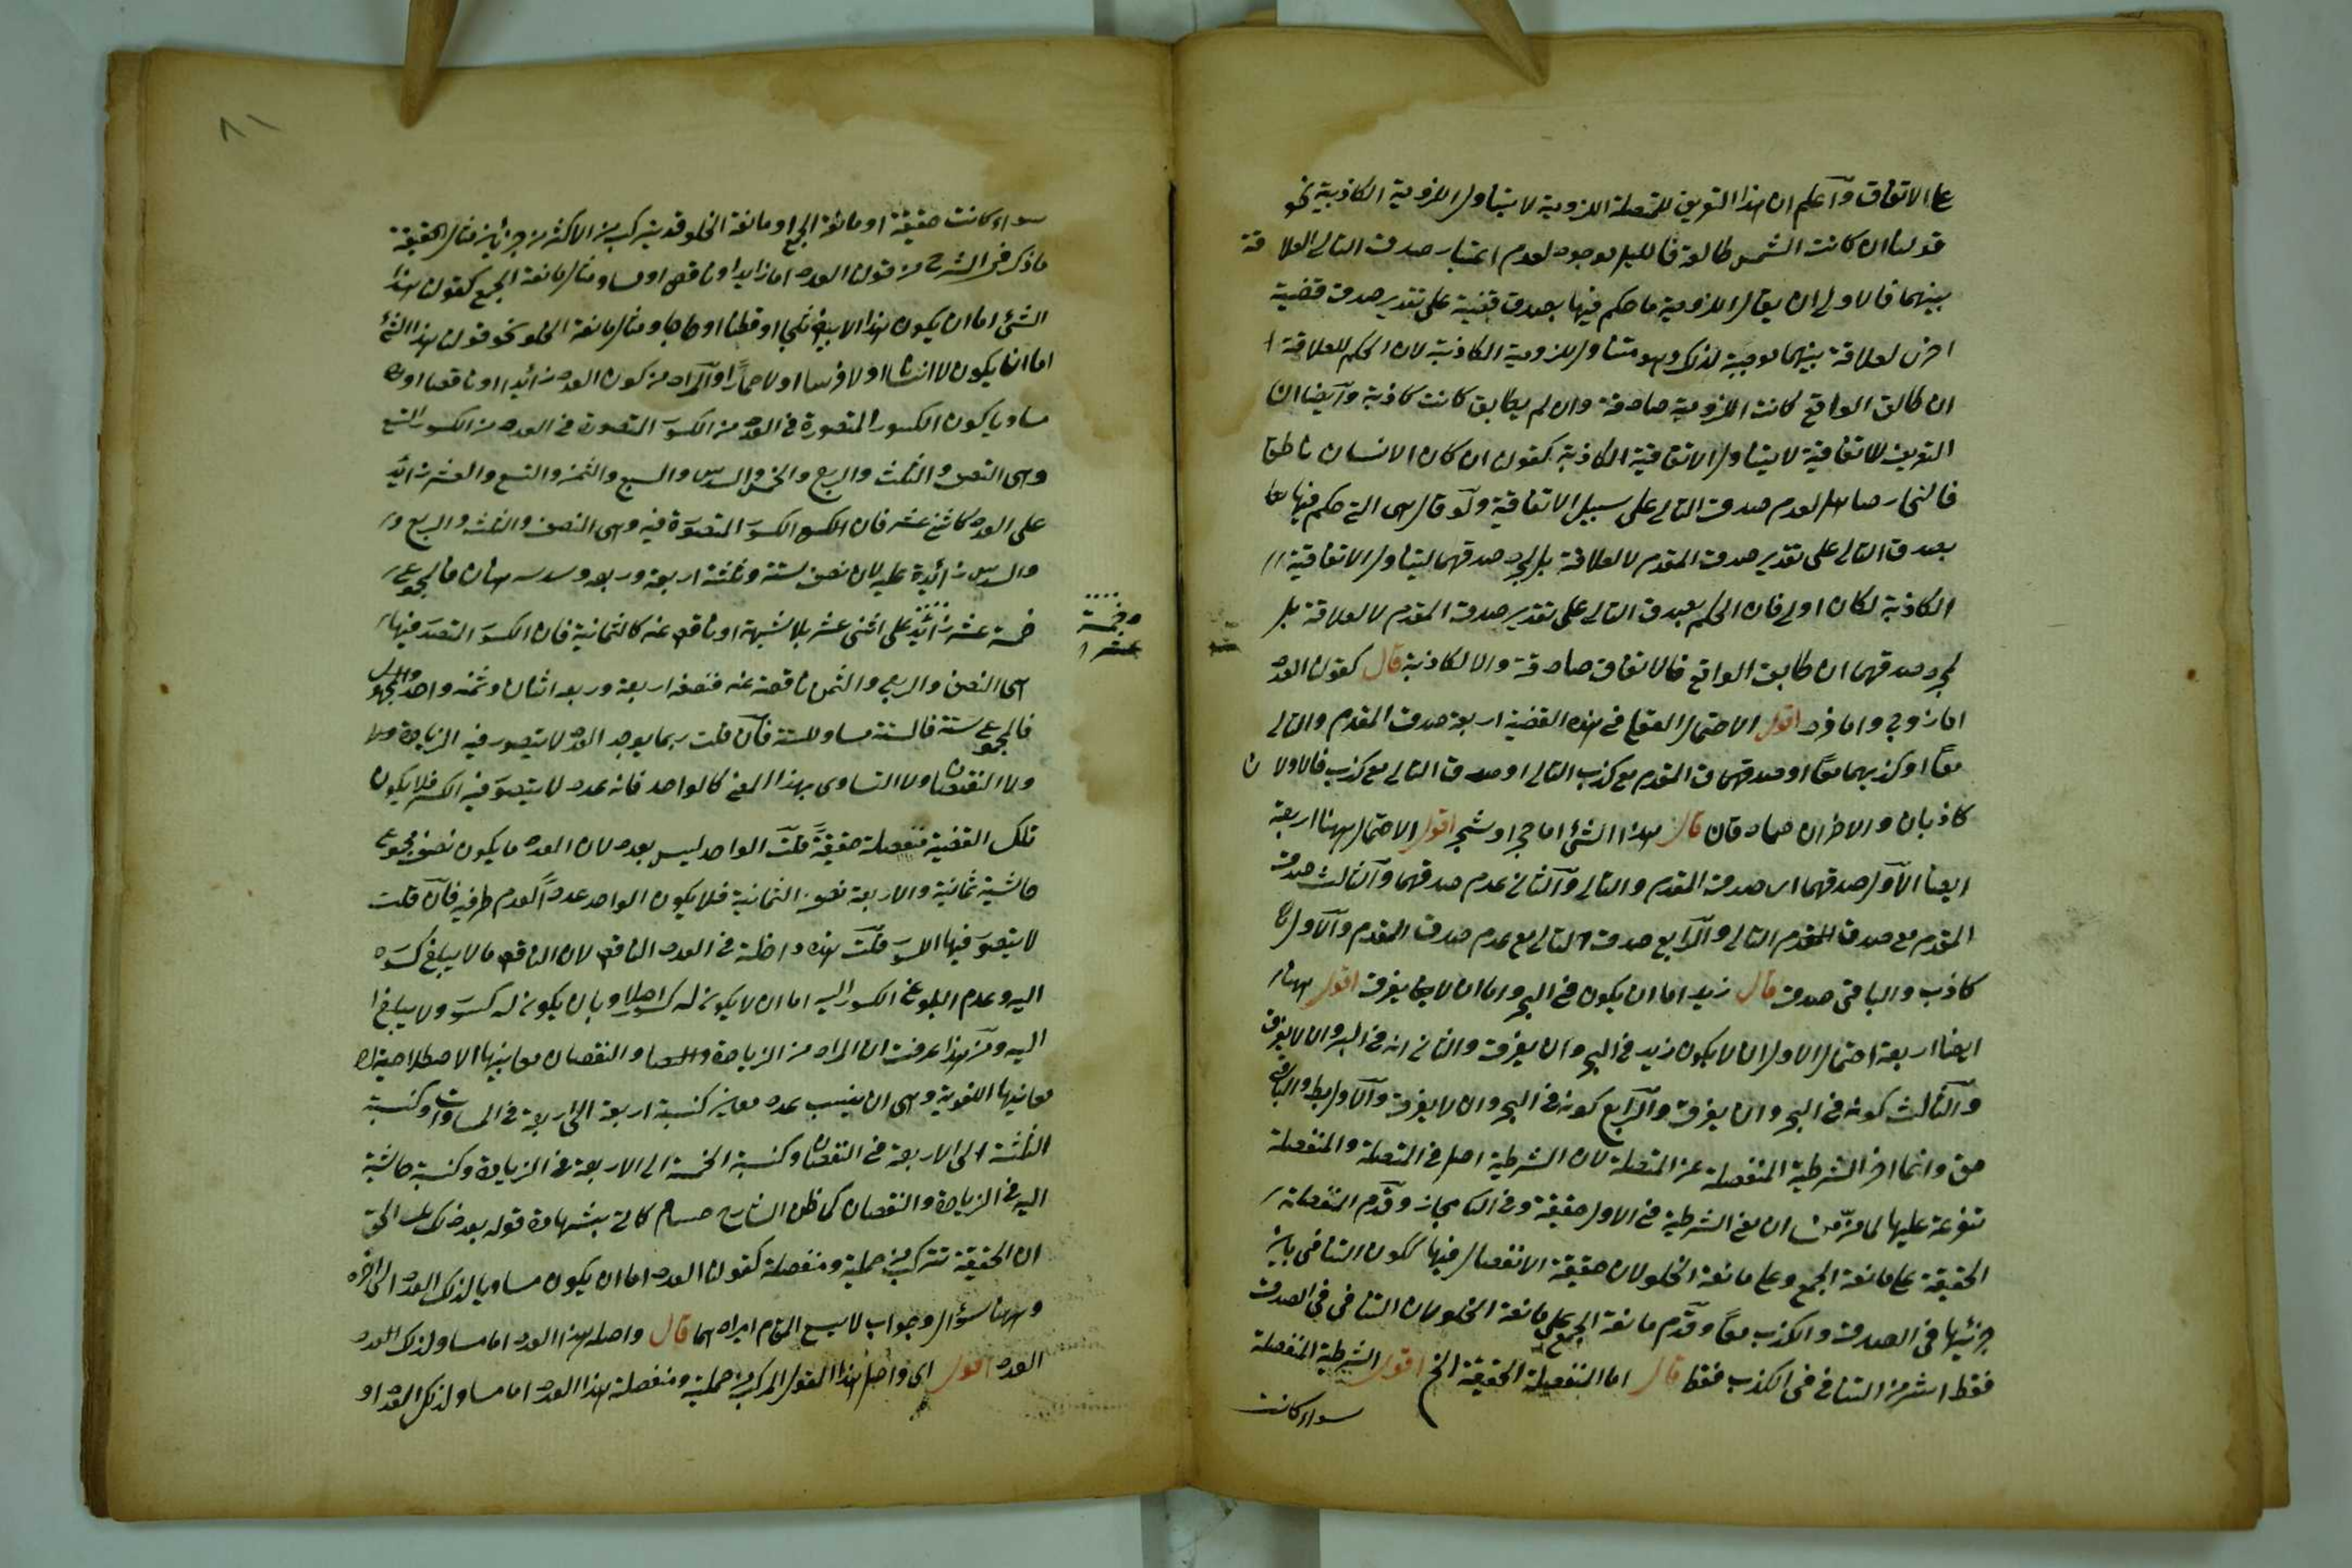 على الاتفاق وآعلم ان هذا التعريف للمتصلة اللزومية لا يتناول اللزومية الكاذبة نحو
قولنا ان كانت الشمس طالعة فالليل موجود لعدم اعتبار صدق التالي لعلاقة
بينهما فالاولى ان يقال اللزومية ما حكم فيها بصدق قضية على تقدير صدق قضية
اخرى لعلاقة بينهما موجبة لذلك وهو متناول للزومية الكاذبة لان الحكم للعلاقة
ان طابق الواقع كانت اللزومية صادقة وان لم يطابق كانت كاذبة وآيضا ان
التعريف للاتفاقية لا يتناول الاتفاقية الكاذبة كقولنا ان كان الانسان ناطقا
فالحمار صاهل لعدم صدق التالي على سبيل الاتفاقية ولو قال هي التي حكم فيها
بصدق التالي على تقدير صدق المقدم لا لعلاقة بل لمجرد صدقهما ليتناول الاتفاقية
الكاذبة لكان اولى فان الحكم بصدق التالي على تقدير صدق المقدم لا لعلاقة بل
لمجرد صدقهما ان طابق الواقع فالاتفاق صادقة والا لكاذبة قال كقولنا العدد
اما زوج واما فرد اقول الاحتمال العقلي في هذه القضية اربعة صدق المقدم والتالي
معًا او كذبهما معًا او صدق المقدم مع كذب التالي او صدق التالي مع كذب فالاولان
كاذبان والاخران صادقان قال هذا الشئ اما حجر او شجر اقول الاحتمال ههنا اربعة
ايضا الآول صدقهما اى صدق المقدم والتالي والثاني عدم صدقهما وآلثالث صدق
المقدم مع صدق المقدم التالي وآلرابع صدق التالي مع عدم صدق المقدم وآلاول
كاذب والباقي صدق قال زيد اما ان يكون في البحر واما ان لا يغرق اقول ههنا
ايضا اربعة احتمال الاول ان لا يكون زيد في البحر وان يغرق والثاني انه في البر وان لا يغرق
وآلثالث كونه في البحر وان يغرق وآلرابع كونه في البحر وان لا يغرق وآلاول بط والباقي
حق وانما اخر الشرطية المنفصلة عن المتصلة لان الشرطية اصل في المتصلة والمنفصلة
متفرعة عليها لما مر من ان معنى الشرطية في الاول حقيقة وفي الثاني مجاز وقدم المنفصلة
الحقيقة على مانعة الجمع وعلى مانعة الخلو لان حقيقة الانفصال فيها لكون التنافي بين
جزئيها في الصدق والكذب معًا وقدّم مانعة الجمع على مانعة الخلو لان التنافي في الصدق
فقط اشد من التنافي في الكذب فقط قال اما المنفصلة الحقيقة الخ اقول الشرطية المنفصلة
سواء كانت
٨١
سواء كانت حقيقة او مانعة الجمع او مانعة الخلو قد يتركب من الاكثر من جزئين مثال الحقيقة
ما ذكر في الشرح من قولنا العدد اما زايد او ناقص او مساو ومثال مانعة الجمع كقولنا هذا
الشئ اما ان يكون هذا الابيض ثلجا او قطنا او عاجا ومثال مانعة الخلو نحو قولنا هذا الشئ
اما ان يكون لا انسانا او لا فرسا او لا حمارًا وآلمراد من كون العدد زائدا او ناقصا او
مساويا كون الكسور المتصورة في العدد من الكسور المتصورة في العدد من الكسور التسع
وهى النصف والثلث والربع والخمس والسدس والسبع والثمن والتسع والعشر زائد
على العدد كاثنى عشر فان الكسور المتصورة فيه وهى النصف والثلث والربع
والسدس زائدة عليه لان نصفه ستة وثلثه اربعة وربعه وسدسه اثنان فالمجموع
خمسة عشر زائد على اثنى عشر بلا شبهة او ناقص عنه كالثمانية فان الكسور المتصورة فيها
اى النصف والربع والثمن ناقصة عنه فنصفه اربعة وربعه اثنان وثمنه واحد
فالمجموع ستة فالستة مساو للستة فآن قلت ربما يوجد العدد لا يتصور فيه الزيادة ولا
ولا النقصان ولا التساوى بهذا المعنى كالواحد فانه عدد لا يتصور فيه الكسر فلا يكون
تلك القضية منفصلة حقيقة قلت الواحد ليس بعدد لان العدد ما يكون نصف مجموع
حاشيتيه ثمانية والاربعة نصف الثمانية فلا يكون الواحد عددًا لعدم طرفيه فآن قلت
لا يتصور فيها الكسور قلت هذه داخلة في العدد الناقص لان الناقص ما لا يبلغ كسوره
اليه وعدم البلوغ الكسور اليه اما ان لا يكون له كسور اصلا او بان يكون له كسور ولا يبلغ
اليه ومن هذا عرفت ان المراد من الزيادة والمساو والنقصان معانيها الاصطلاحية لا
معانيها اللغوية وهى ان ينسب عدد معاير كنسبة اربعة الى اربعة في المساوات او كنسبة
الثلثة الى الاربعة في النقصان او كنسبة الخمسة الى الاربعة في الزيادة وكنسبة حاشية
اليه في الزيادة والنقصان كما ظن الشارح حسام كاتي بشهادة قوله بعد ذلك الحق
ان الحقيقة تتركب من حملية ومنفصلة كقولنا العدد اما ان يكون مساويا لذلك العدد الى اخره
وههنا سؤال وجواب لا يسع المقام ايرادهما قال واصله هذا العدد اما مساو لذلك العدد
العدد اقول اى واصل هذا القول المركب من حملية ومنفصلة هذا العدد اما مساو لذلك العدد او